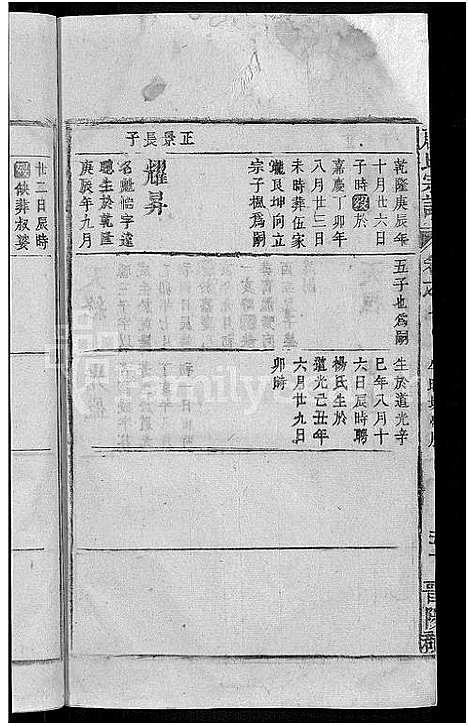 乾隆庚辰年
十月廿六日
子時歿於
嘉慶丁卯年
八月廿三日
未時葬伍家
壠艮坤向立
宗子楓為嗣
正景長子
耀昇
名魁怡字達
聰生於乾隆
庚辰年九月
五子也為嗣
生於道光辛
巳年八月十
六日辰時聘
楊氏生於
道光己丑年
六月廿九日
卯時
廿三日辰時
歿葬叔婆
晋陽郡